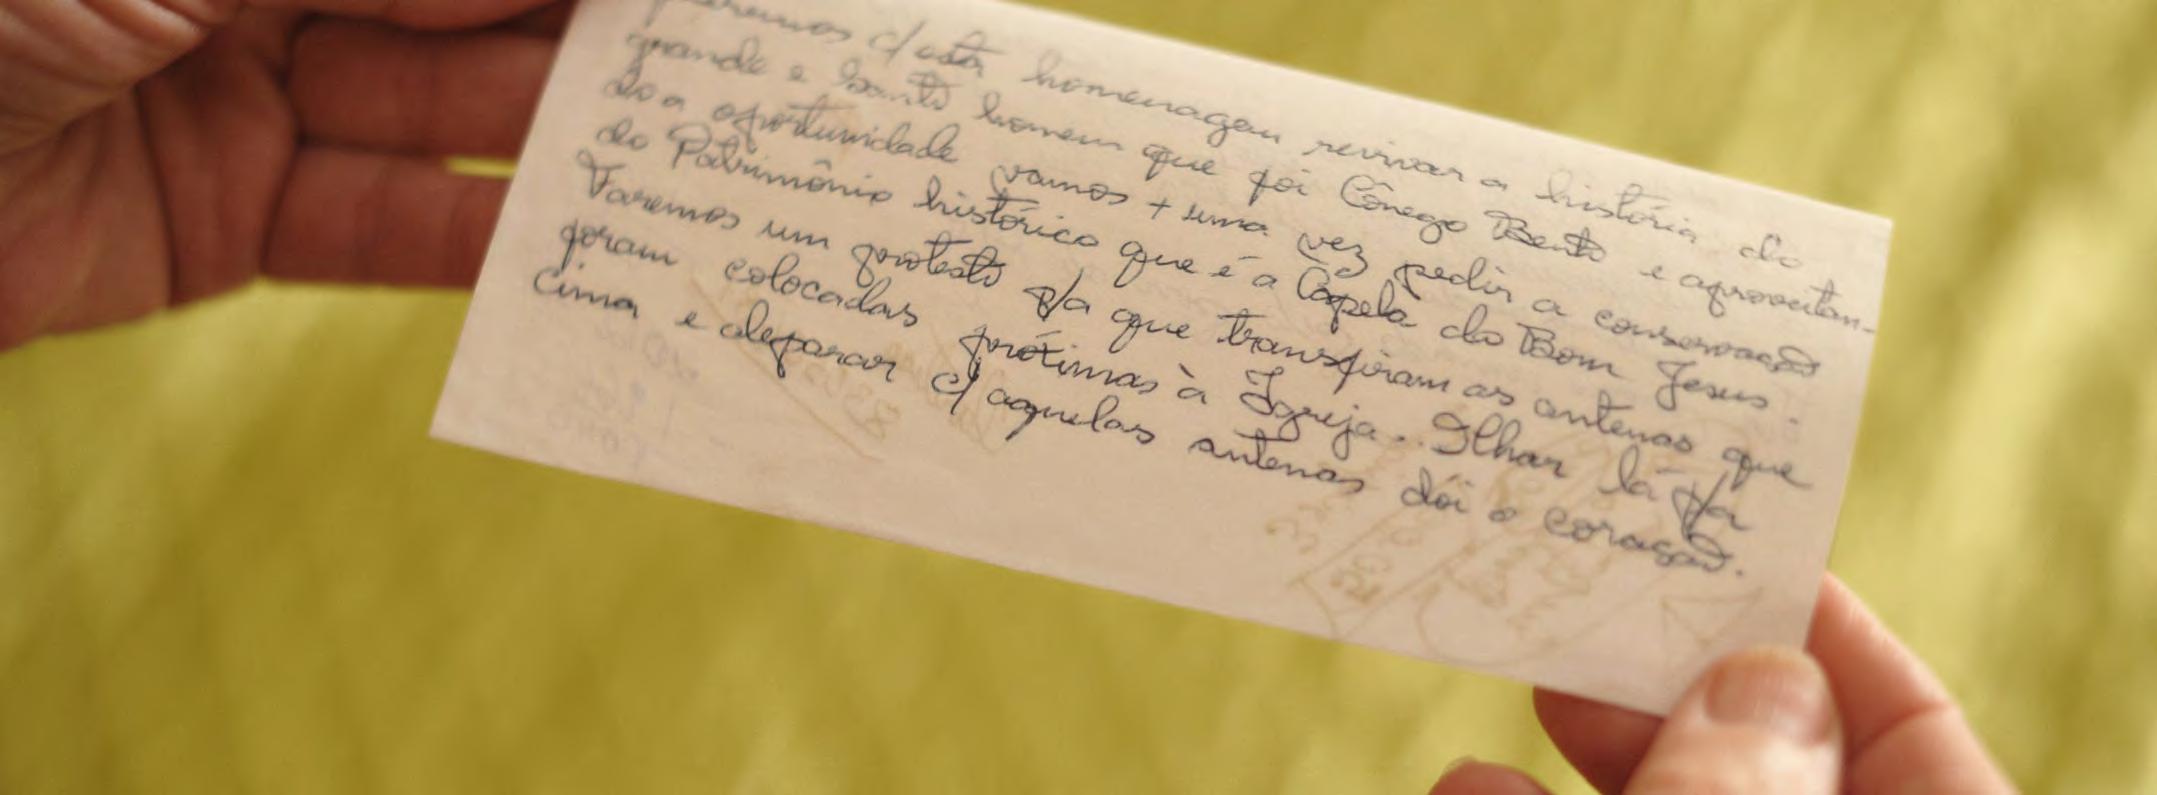 queremos c/ esta homenagem revivar a história do
grande e santo homem que foi Cônego Bento e aproveitan-
do a oportunidade vamos + uma vez pedir a conservação
do Patrimônio histórico que é a Capela do Bom Jesus.
Faremos um protesto p/a que transfiram as antenas que
foram colocadas próximas à Igreja. Olhar lá p/a
cima e deparar c/ aquelas antenas dói o coração.